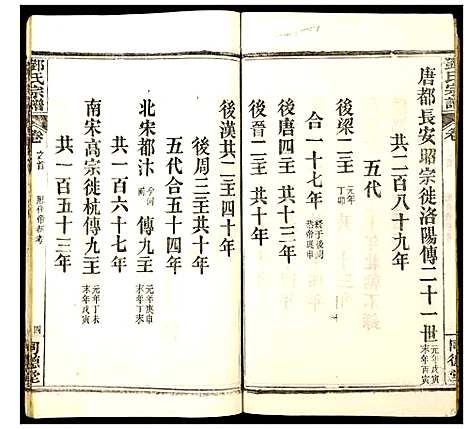 鄧氏宗譜 卷
唐都長安昭宗徙洛陽傳二十一世 元年戊寅 末年丙寅
共二百八十九年
五代
後梁二主 元年丁卯
合一十七年 終于後周恭帝庚申
後唐四主 共十三年
後晉二主 共十年
同德堂
後漢共二主四十年
後周三主共十年
五代合五十四年
北宋都汴 今河南 傳九主 元年庚申 末年丁未
共一百六十七年
南宋高宗徙杭傳九主 元年丁未 末年戊寅
共一百五十三年
鄧氏宗譜 卷之首 歷代帝都考 四 同德堂